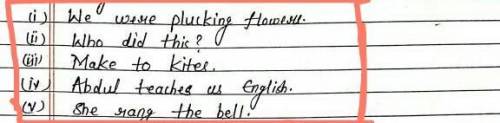 (i) We were plucking flowers.
(ii) Who did this?
(iii) Make to kites.
(iv) Abdul teaches us English.
(v) She rang the bell.